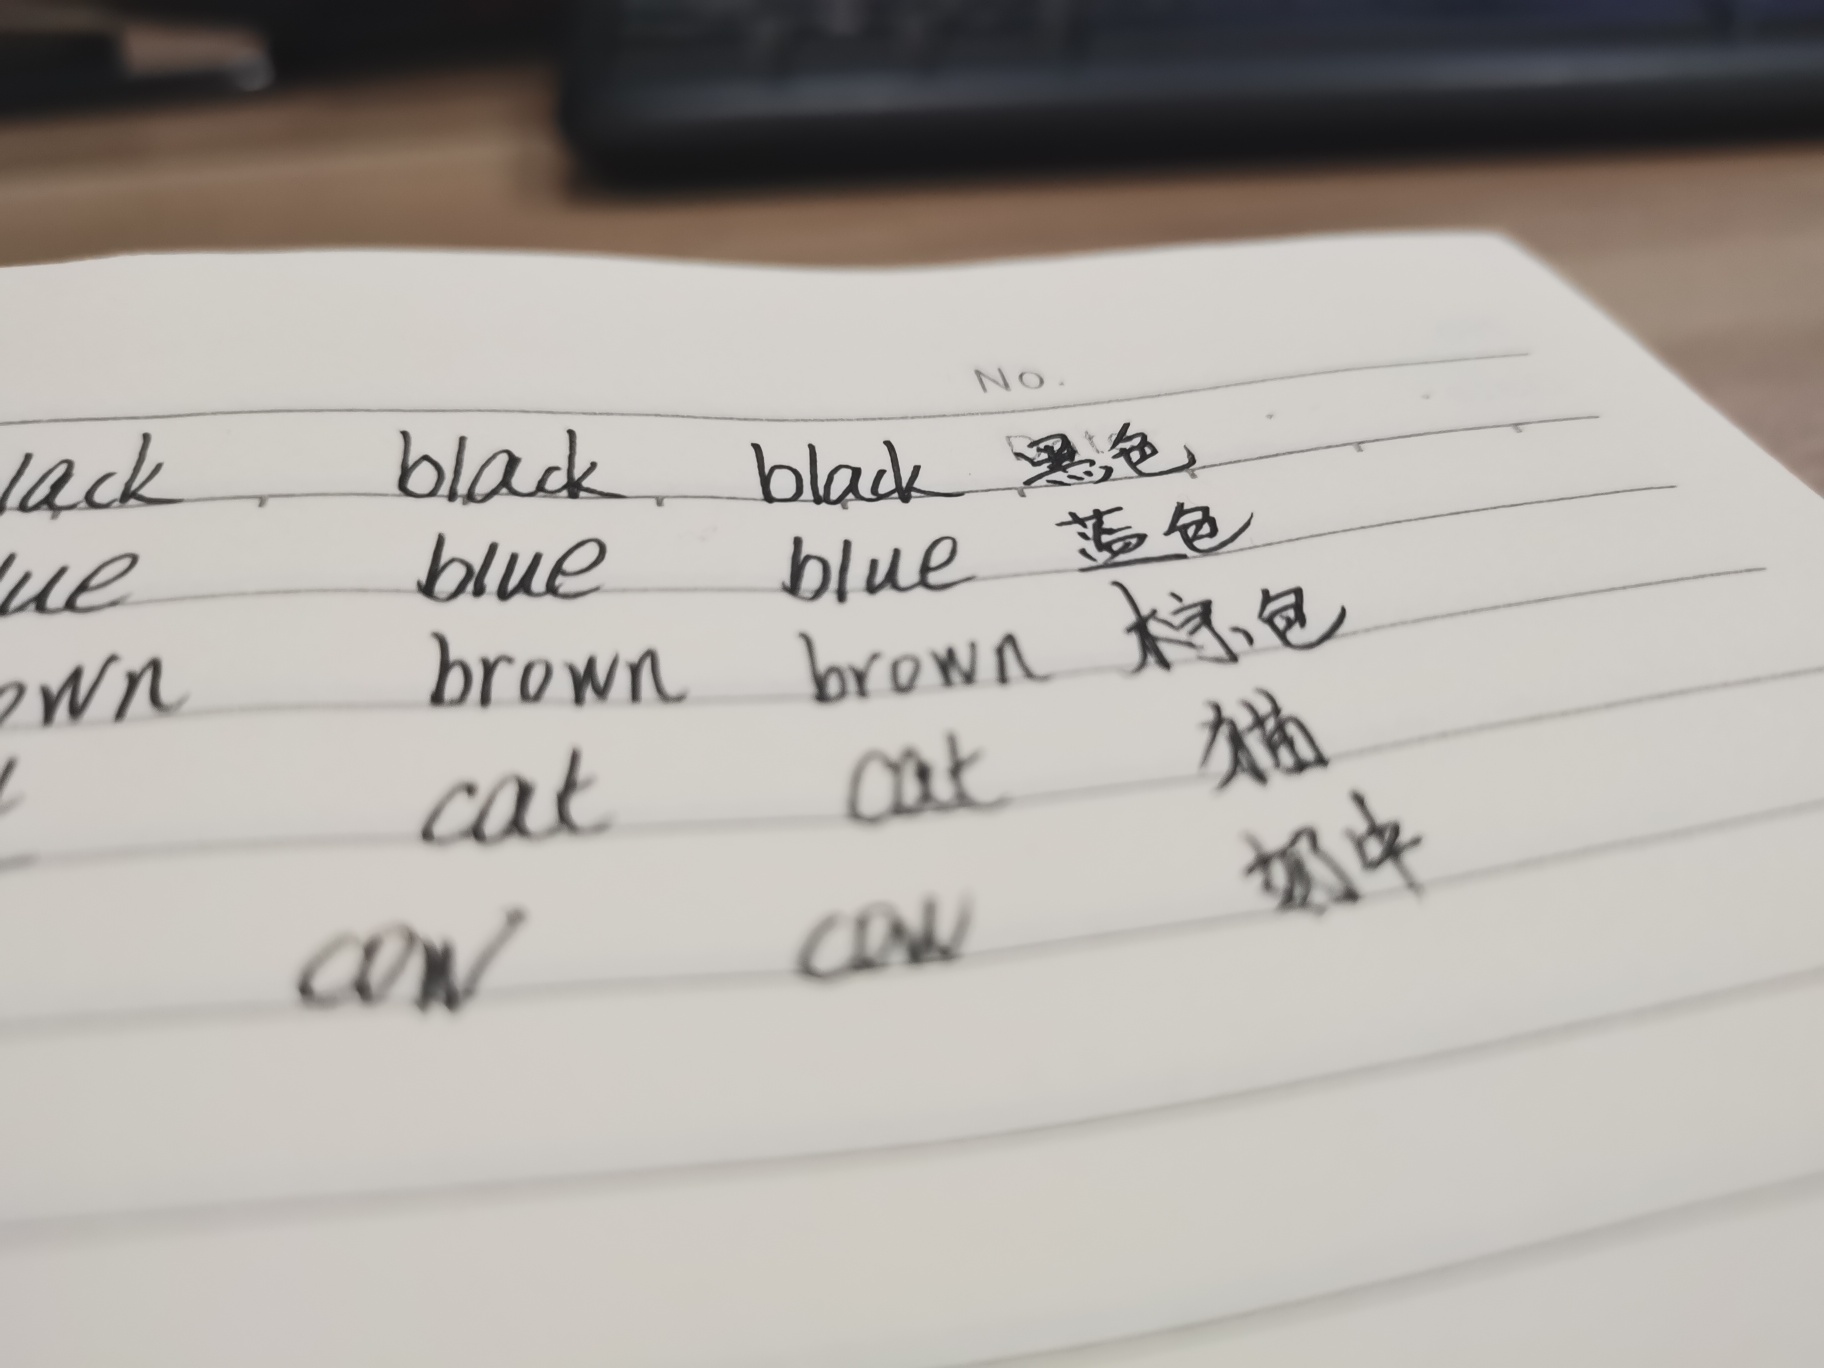 No.
lack black black 黑色
lue blue blue 蓝色
own brown brown 棕色
t cat cat 猫
cow cow 奶牛